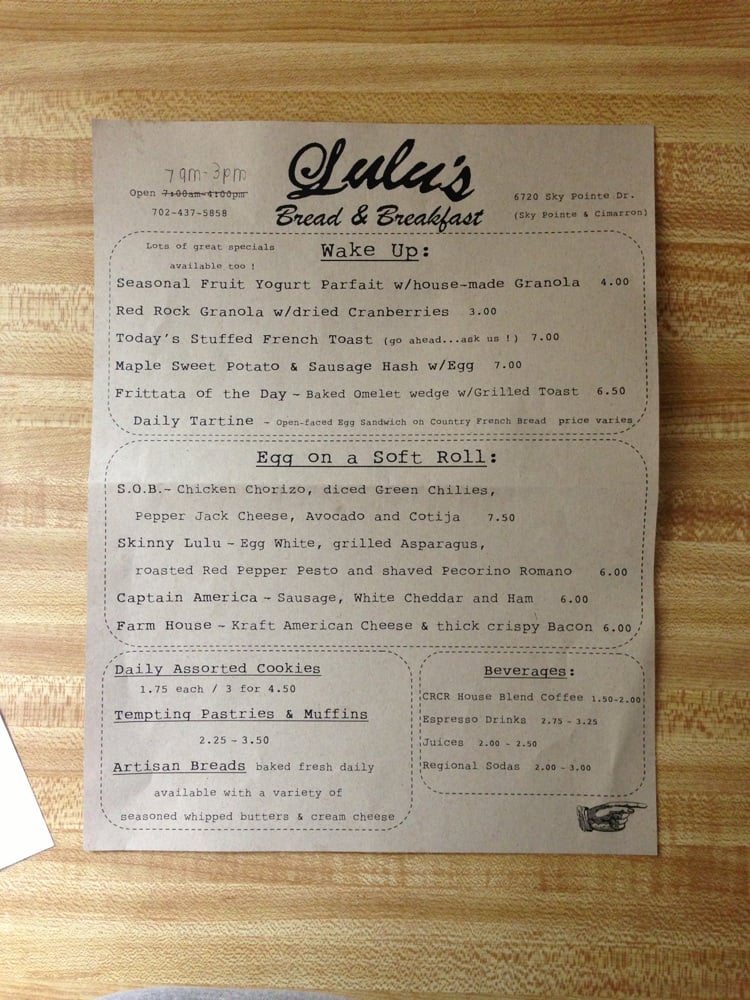 Lulu's
Bread & Breakfast
7am-3pm
Open 7:00am-4:00pm
702-437-5858
6720 Sky Pointe Dr.
(Sky Pointe & Cimarron)
Lots of great specials
available too !
Wake Up:
Seasonal Fruit Yogurt Parfait w/house-made Granola 4.00
Red Rock Granola w/dried Cranberries 3.00
Today's Stuffed French Toast (go ahead...ask us !) 7.00
Maple Sweet Potato & Sausage Hash w/Egg 7.00
Frittata of the Day ~ Baked Omelet wedge w/Grilled Toast 6.50
Daily Tartine ~ Open-faced Egg Sandwich on Country French Bread price varies
Egg on a Soft Roll:
S.O.B.~ Chicken Chorizo, diced Green Chilies,
Pepper Jack Cheese, Avocado and Cotija 7.50
Skinny Lulu ~ Egg White, grilled Asparagus,
roasted Red Pepper Pesto and shaved Pecorino Romano 6.00
Captain America ~ Sausage, White Cheddar and Ham 6.00
Farm House ~ Kraft American Cheese & thick crispy Bacon 6.00
Daily Assorted Cookies
1.75 each / 3 for 4.50
Tempting Pastries & Muffins
2.25 ~ 3.50
Artisan Breads baked fresh daily
available with a variety of
seasoned whipped butters & cream cheese
Beverages:
CRCR House Blend Coffee 1.50~2.00
Espresso Drinks 2.75 ~ 3.25
Juices 2.00 ~ 2.50
Regional Sodas 2.00 ~ 3.00